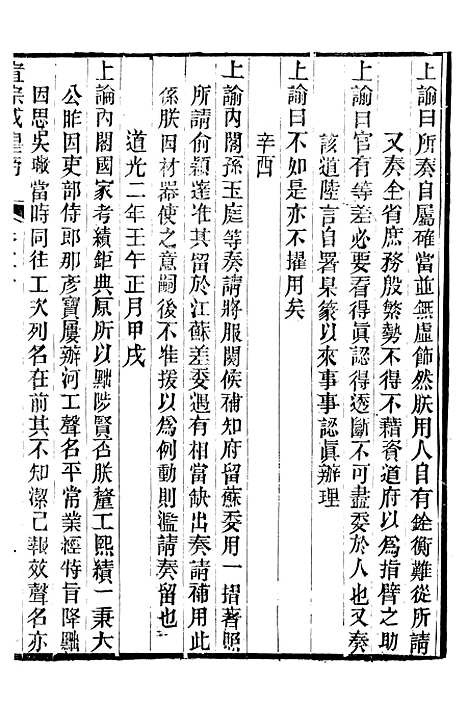 上諭曰所奏自屬確當並無虛飾然朕用人自有銓衡難從所請
又奏全省庶務殷繁勢不得不藉資道府以爲指臂之助
上諭曰官有等差必要看得眞認得透斷不可盡委於人也又奏
該道陸言自署臬篆以來事事認眞辦理
上諭曰不如是亦不擢用矣
辛酉
上諭內閣孫玉庭等奏請將服闋候補知府留蘇委用一摺著照
所請俞穎達准其留於江蘇差委遇有相當缺出奏請補用此
係朕因材器使之意嗣後不准援以爲例動則濫請奏留也
道光二年壬午正月甲戌
上諭內閣國家考績鉅典原所以黜陟賢否朕釐工熙績一秉大
公昨因吏部侍郎那彥寶屢辦河工聲名平常業經特旨降黜
因思吳璥當時同往工次列名在前其不知潔己報效聲名亦
宣宗成皇帝